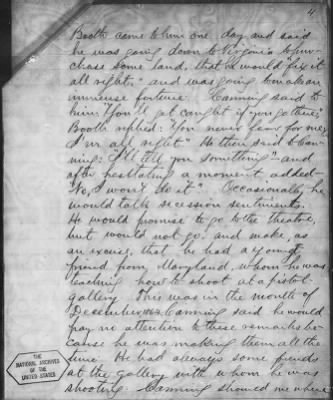 4
Booth came to him one day and said
he was going down to Virginia to pur-
chase some land, that he would "fix it
all right," and was going to make an
immense fortune. Canning said to
him: "You'll get caught if you go there;"
Booth replied: "You never fear for me,
I'm all right" He then said to Can-
ning: "I'll tell you something"—and
after hesitating a moment added—
"No, I won't do it". Occasionally he
would talk secession sentiments.
He would promise to go to the theatre,
but would not go and make, as
an excuse, that he had a young
friend from Maryland, whom he was
teaching how to shoot at a pistol
gallery. This was in the month of
December Canning said he would
pay no attention to these remarks be-
cause he was making them all the
time. He had always some friends
at the gallery with whom he was
shooting. Canning showed me where
THE
NATIONAL ARCHIVES
OF THE
UNITED STATES